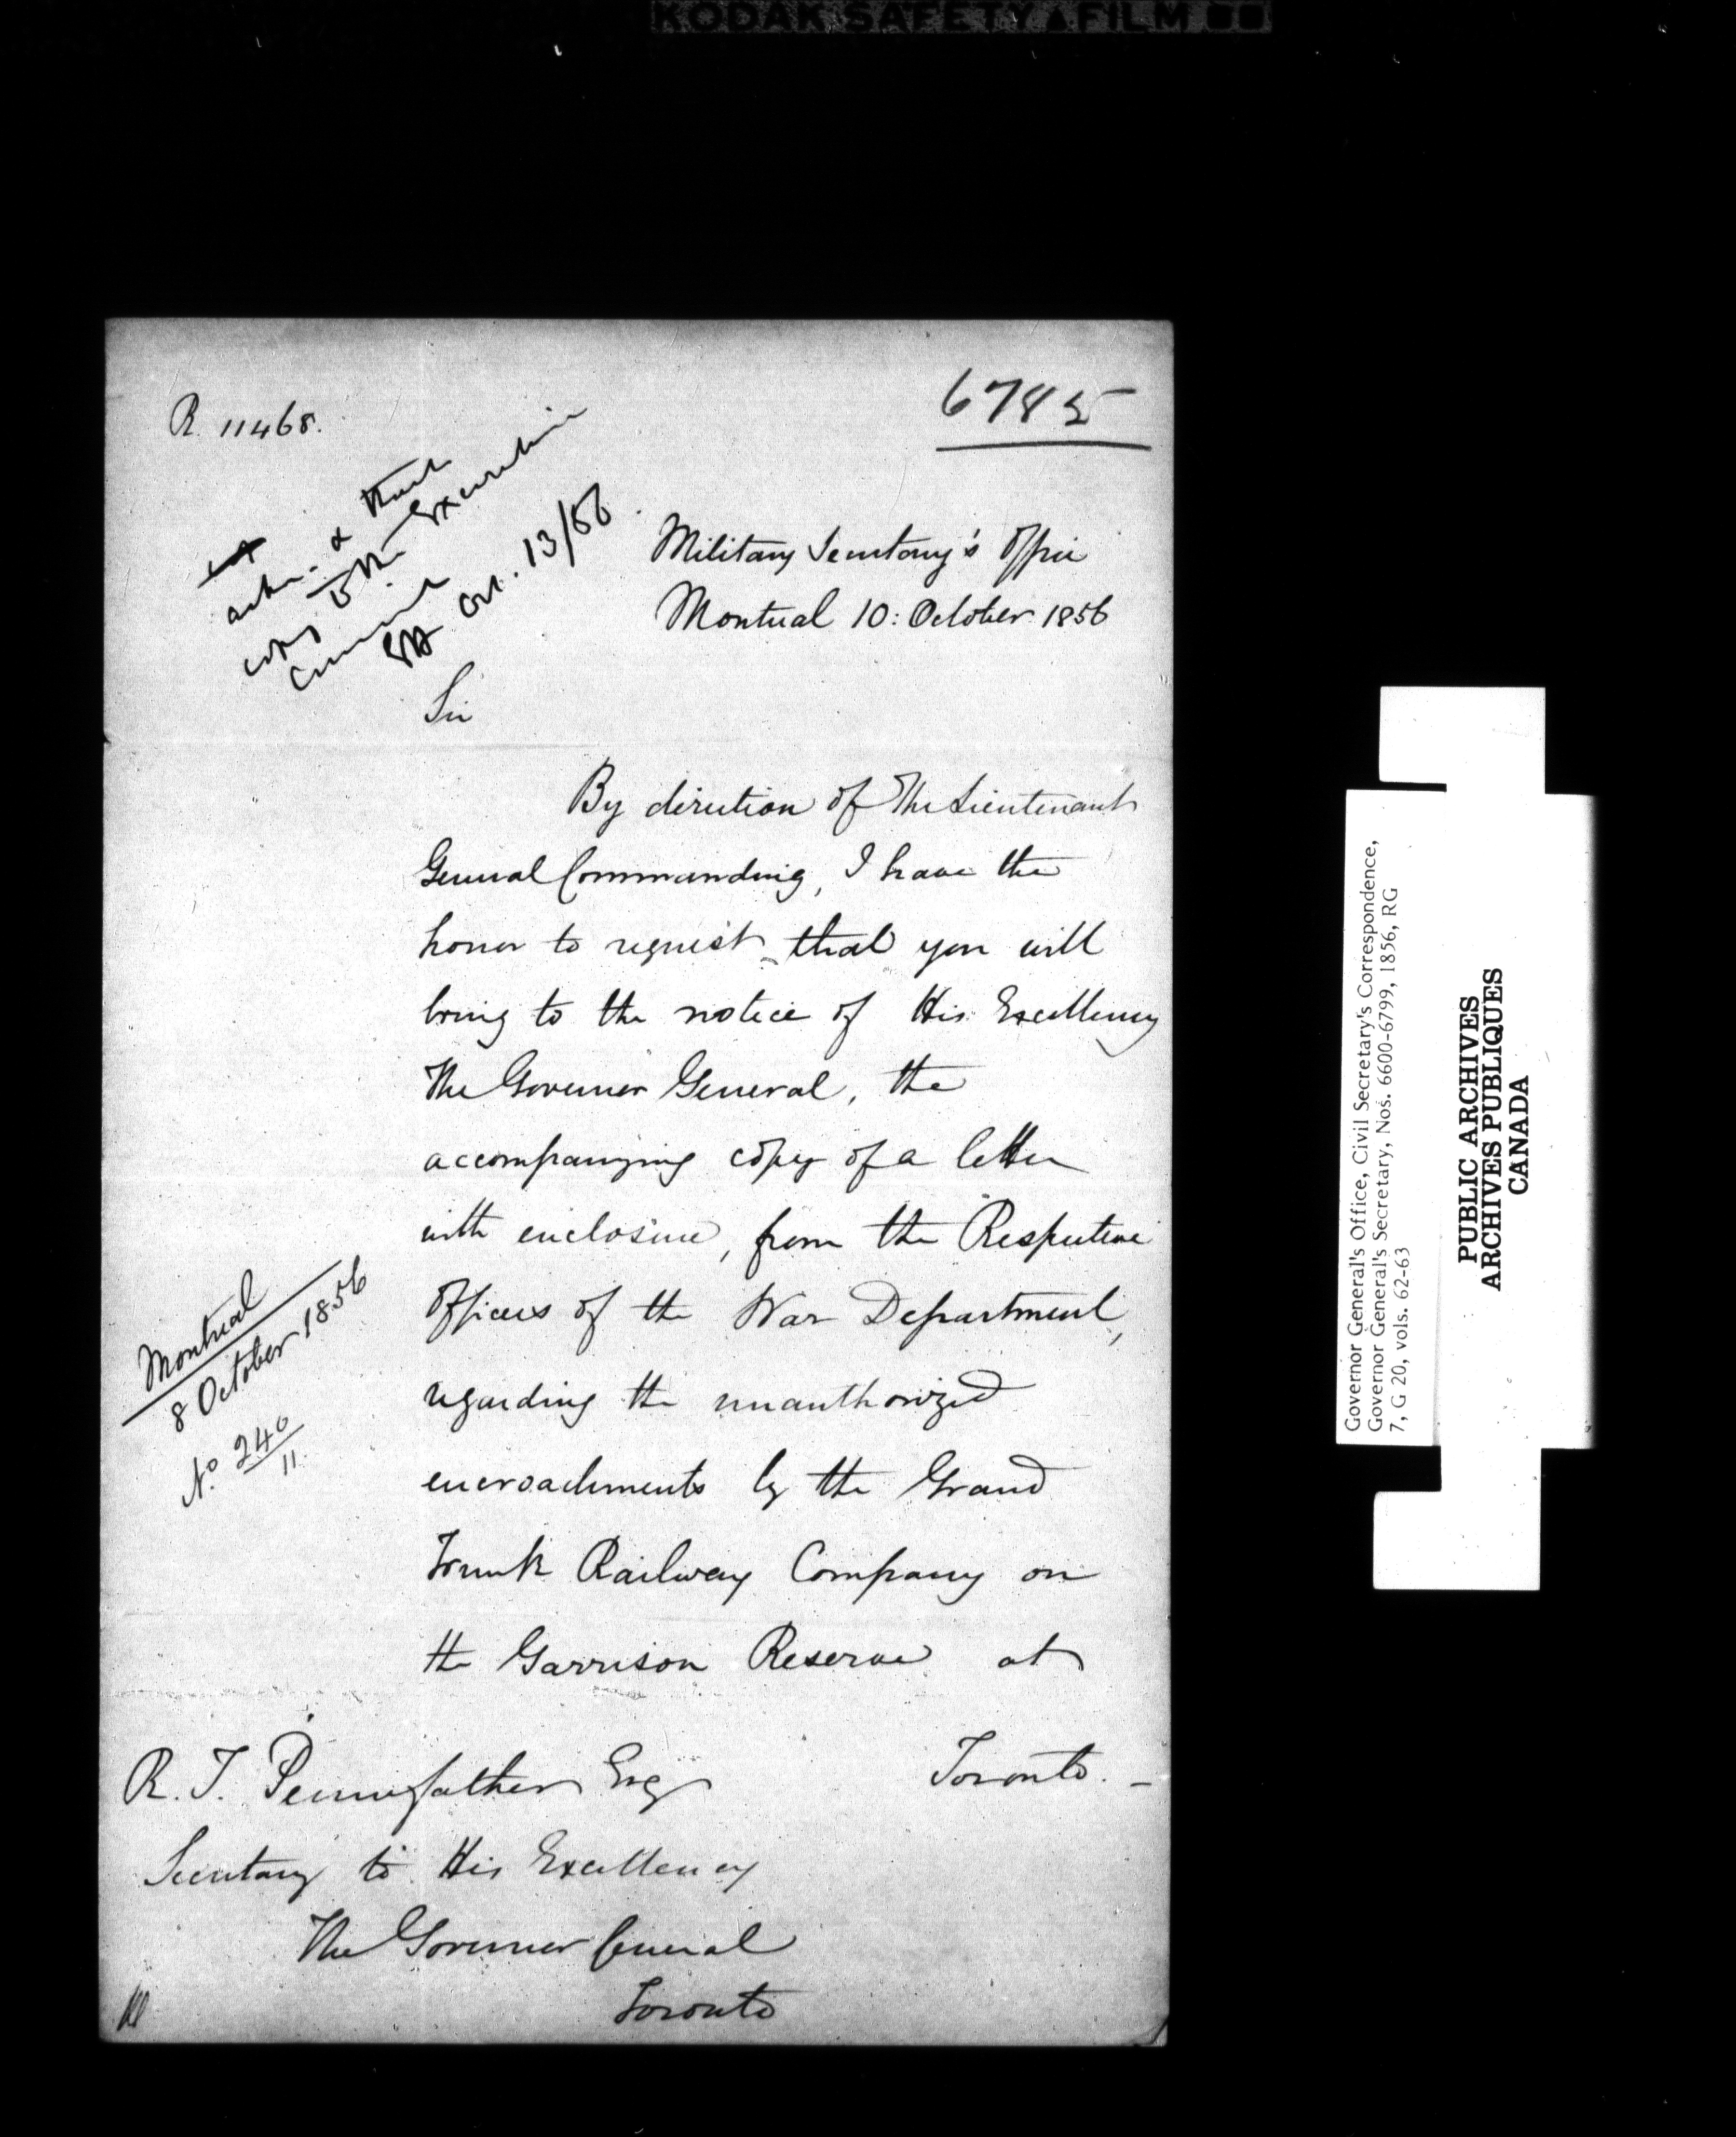 KODAK SAFETY FILM
R. 11468.
6785
ackn. & thank
copy to the Executive
Council
Oct. 13/56
Military Secretary's Office
Montreal 10: October 1856
Sir
By direction of The Lieutenant
General Commanding, I have the
honor to request that you will
bring to the notice of His Excellency
The Governor General, the
accompanying copy of a letter
with enclosure, from the Respective
Officers of the War Department,
regarding the unauthorized
encroachments by the Grand
Trunk Railway Company on
the Garrison Reserve at
Toronto. _
Montreal
8 October 1856
No 240/11.
R. T. Pennefather Esq
Secretary to His Excellency
The Governor General
Toronto
Governor General's Office, Civil Secretary's Correspondence,
Governor General's Secretary, Nos. 6600-6799, 1856, RG
7, G 20, vols. 62-63
PUBLIC ARCHIVES
ARCHIVES PUBLIQUES
CANADA